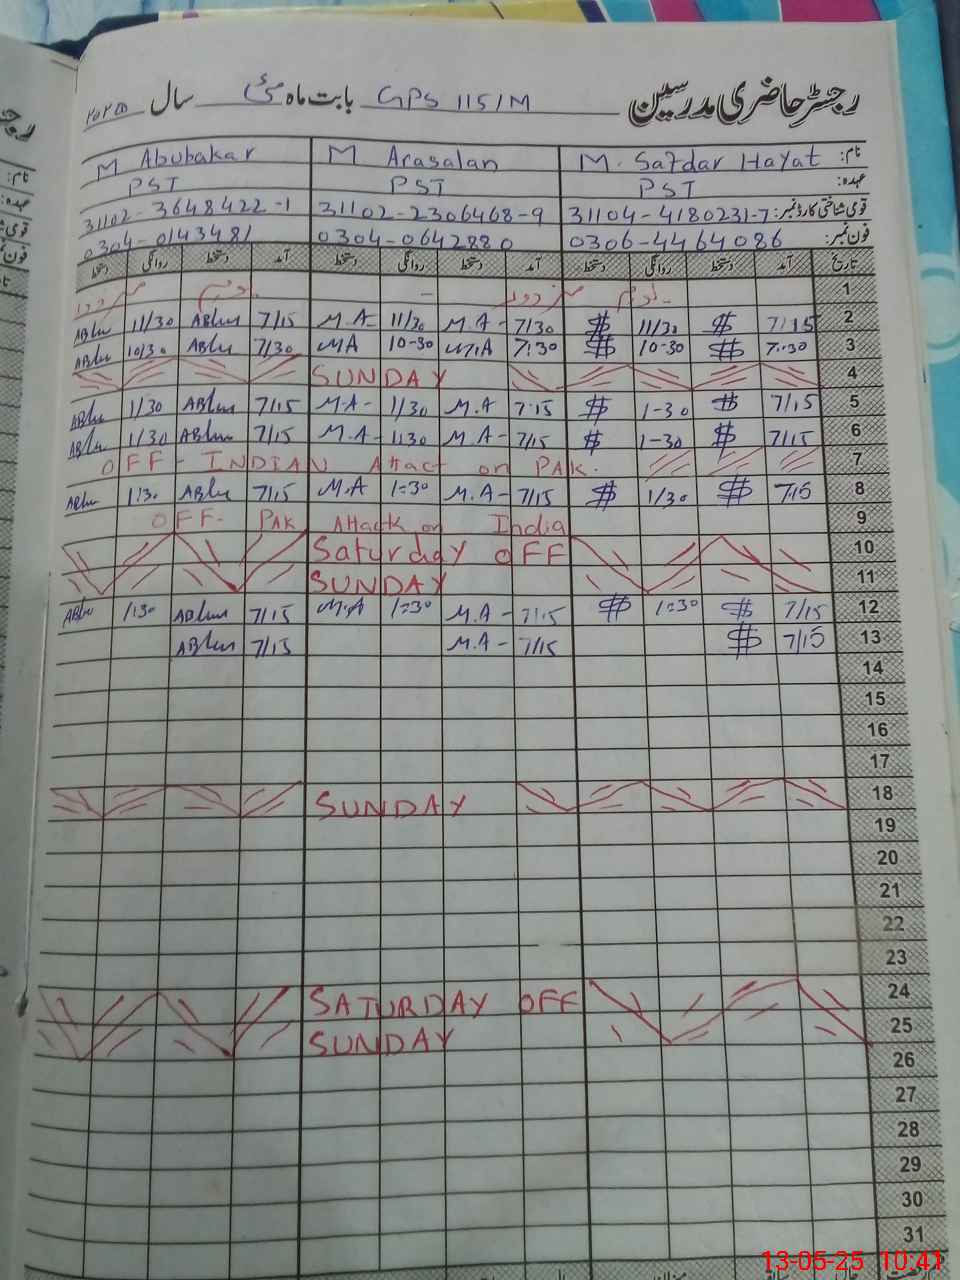 رجسٹر حاضری مدرسین GPS 115/M بابت ماہ مئی سال ۲۰۲۵
نام: M. Safdar Hayat M Arasalan M Abubakar
عہدہ: PST PST PST
قومی شناختی کارڈ نمبر: 31104-4180231-7 31102-2306468-9 31102-3648422-1
فون نمبر: 0306-4464086 0304-0642880 0304-0143481
تاریخ آمد دستخط روانگی دستخط آمد دستخط روانگی دستخط آمد دستخط روانگی دستخط
1 یوم مزدور یوم مزدور
2 7/15 $ 11/30 $ 7/30 M.A- 11/30 M.A- 7/15 ABku 11/30 ABku
3 7:30 $ 10-30 $ 7:30 M.A 10-30 MA 7/30 ABku 10/30 ABku
4 SUNDAY
5 7/15 $ 1-30 $ 7:15 M.A 1/30 M.A- 7/15 ABku 1/30 ABku
6 7/15 $ 1-30 $ 7/15 M.A- 1:30 M.A- 7/15 ABku 1/30 ABku
7 OFF - INDIAN Attact on PAK.
8 7:15 $ 1/30 $ 7/15 M.A- 1:30 M.A 7/15 ABku 1:30 ABku
9 OFF- PAK Attack on India
10 Saturday OFF
11 SUNDAY
12 7/15 $ 1:30 $ 7:15 M.A- 1:30 M.A 7/15 ABku 1:30 ABku
13 7/15 $ 7/15 M.A- 7/15 ABku
14
15
16
17
18 SUNDAY
19
20
21
22
23
24 SATURDAY OFF
25 SUNDAY
26
27
28
29
30
31
13-05-25 10:41